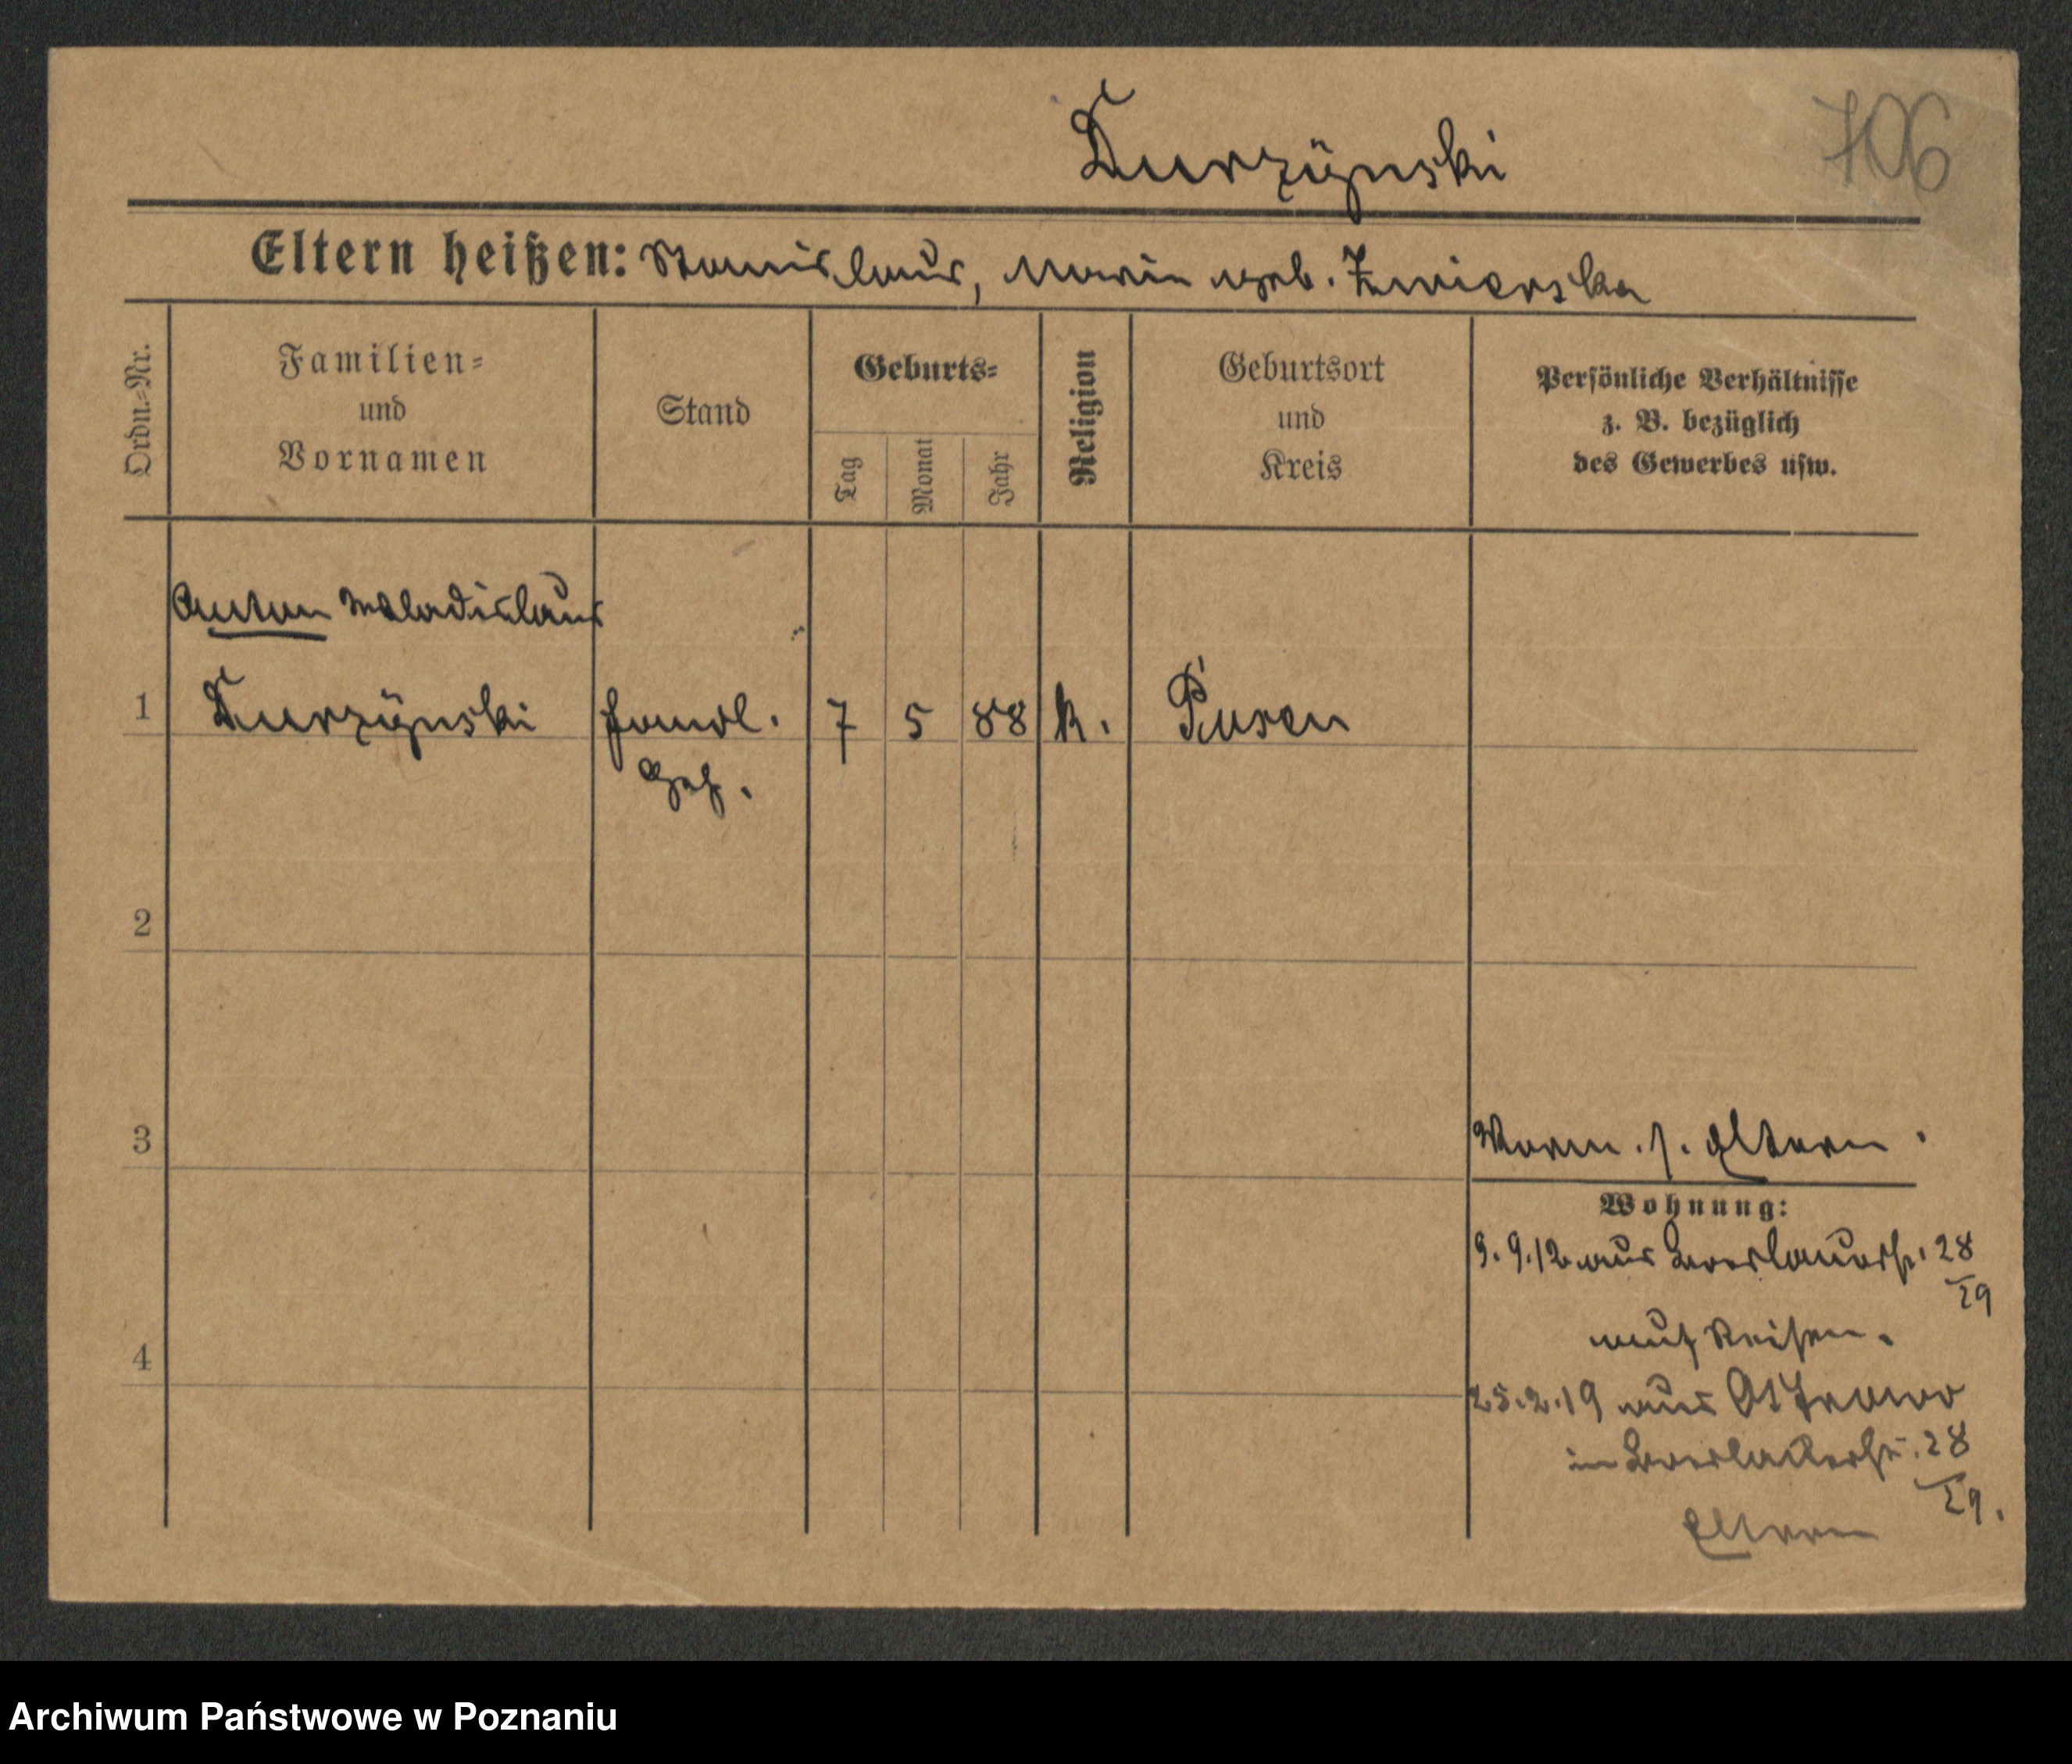 Durzyński
706
Eltern heißen: Stanislaus, Maria geb. Zwierska
Ordn.=Nr.
Familien=
und
Vornamen
Stand
Geburts=
Tag
Monat
Jahr
Religion
Geburtsort
und
Kreis
Persönliche Verhältnisse
z. B. bezüglich
des Gewerbes usw.
Anton Wladislaus
1 Durzyński Handl. 7 5 88 k. Posen
Geh.
2
3
Vorm. s. Eltern.
Wohnung:
9.9.12 aus 28
auf Reisen.
4
25.2.19 aus Ostrowo
in 28
Eltern
Archiwum Państwowe w Poznaniu